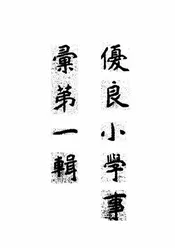 優良小学事
彙第一輯